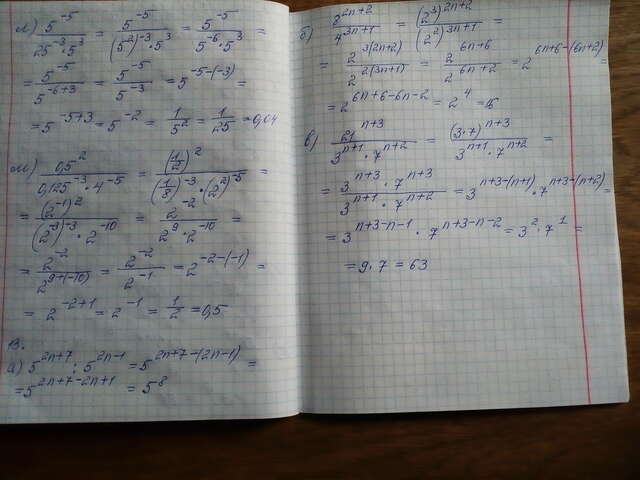 л) 5^-5 / (25^-3 · 5^3) = 5^-5 / ((5^2)^-3 · 5^3) = 5^-5 / (5^-6 · 5^3) =
= 5^-5 / 5^-6+3 = 5^-5 / 5^-3 = 5^-5-(-3) =
= 5^-5+3 = 5^-2 = 1/5^2 = 1/25 = 0,04
м) 0,5^2 / (0,125^-3 · 4^-5) = (1/2)^2 / ((1/8)^-3 · (2^2)^-5) =
= (2^-1)^2 / ((2^-3)^-3 · 2^-10) = 2^-2 / (2^9 · 2^-10) =
= 2^-2 / 2^9+(-10) = 2^-2 / 2^-1 = 2^-2-(-1) =
= 2^-2+1 = 2^-1 = 1/2 = 0,5
13.
а) 5^2n+7 : 5^2n-1 = 5^2n+7-(2n-1) =
= 5^2n+7-2n+1 = 5^8
б) 8^2n+2 / 4^3n+1 = (2^3)^2n+2 / (2^2)^3n+1 =
= 2^3(2n+2) / 2^2(3n+1) = 2^6n+6 / 2^6n+2 = 2^6n+6-(6n+2) =
= 2^6n+6-6n-2 = 2^4 = 16
в) 21^n+3 / (3^n+1 · 7^n+2) = (3·7)^n+3 / (3^n+1 · 7^n+2) =
= 3^n+3 · 7^n+3 / (3^n+1 · 7^n+2) = 3^n+3-(n+1) · 7^n+3-(n+2) =
= 3^n+3-n-1 · 7^n+3-n-2 = 3^2 · 7^1 =
= 9 · 7 = 63